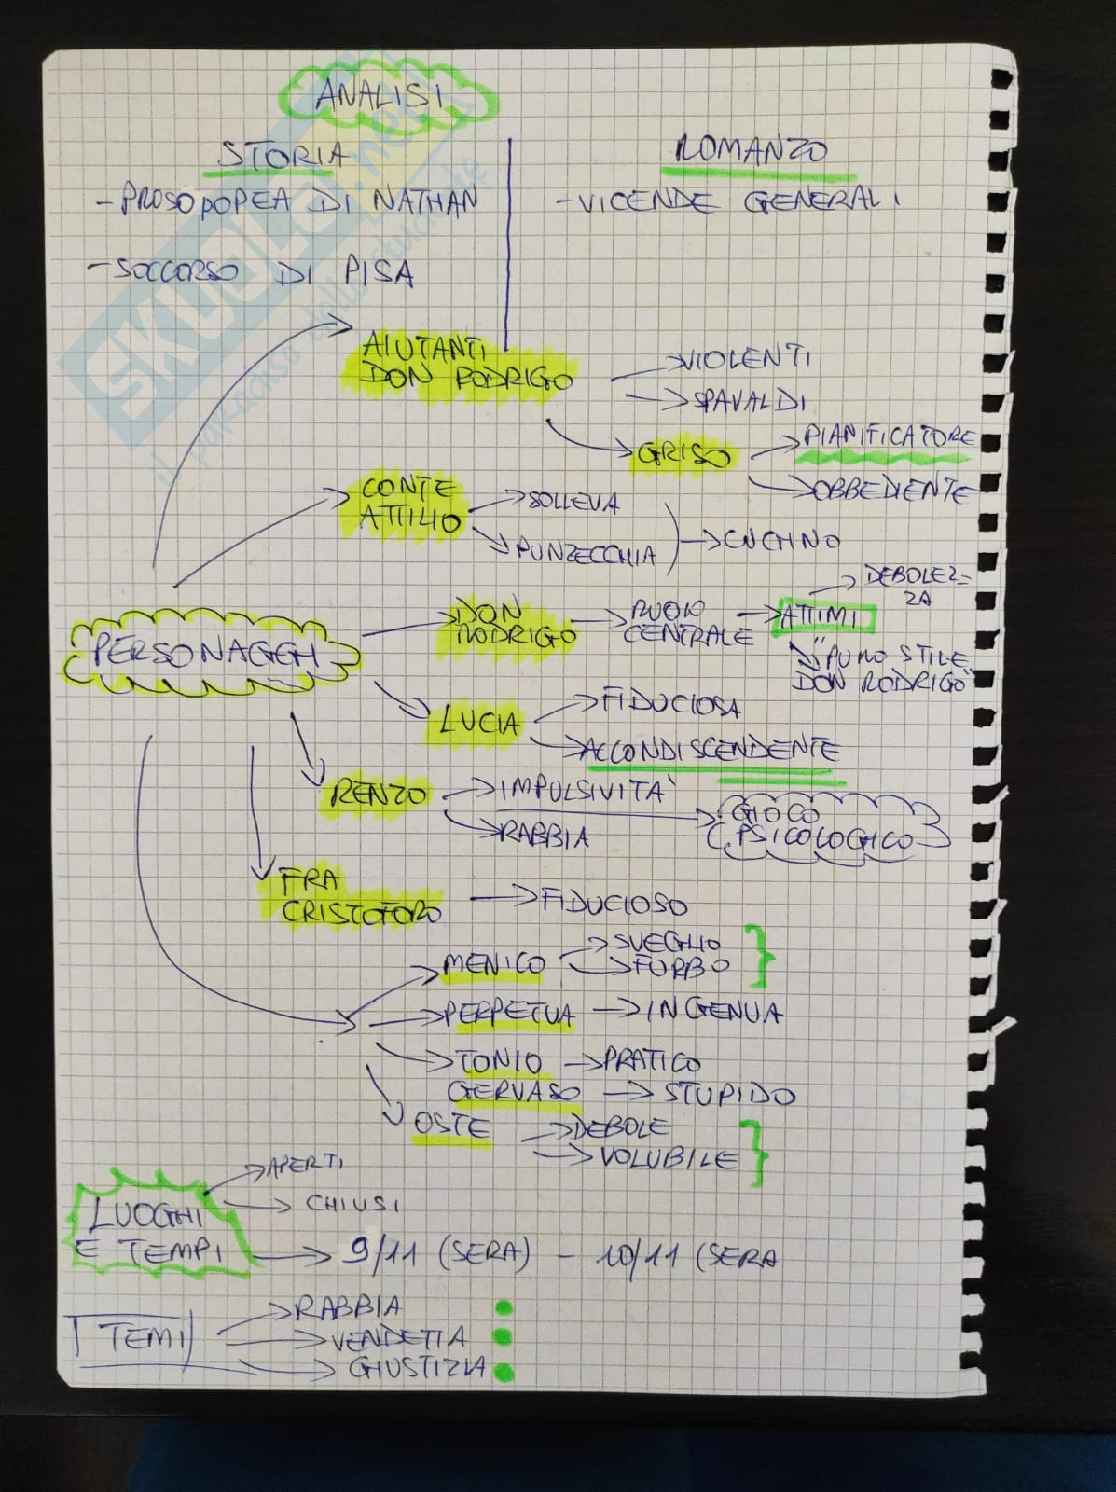 ANALISI
STORIA
ROMANZO
- PROSOPOPEA DI NATHAN
- VICENDE GENERALI
- SOCCORSO DI PISA
AIUTANTI
DON RODRIGO
VIOLENTI
SPAVALDI
GRISO
PIANIFICATORE
OBBEDIENTE
CONTE
ATTILIO
SOLLEVA
PUNZECCHIA
PERSONAGGI
DON
RODRIGO
RUOLO
CENTRALE
ATTIMI
DEBOLEZ-
ZA
"PURO STILE
DON RODRIGO"
LUCIA
FIDUCIOSA
ACCONDISCENDENTE
RENZO
IMPULSIVITÀ
RABBIA
GIOCO
PSICOLOGICO
FRA
CRISTOFORO
FIDUCIOSO
MENICO
SVEGLIO
FURBO
PERPETUA
INGENUA
TONIO
PRATICO
GERVASO
STUPIDO
OSTE
DEBOLE
VOLUBILE
LUOGHI
E TEMPI
APERTI
CHIUSI
9/11 (SERA) - 10/11 (SERA
TEMI
RABBIA
VENDETTA
GIUSTIZIA
SKUOLA.net